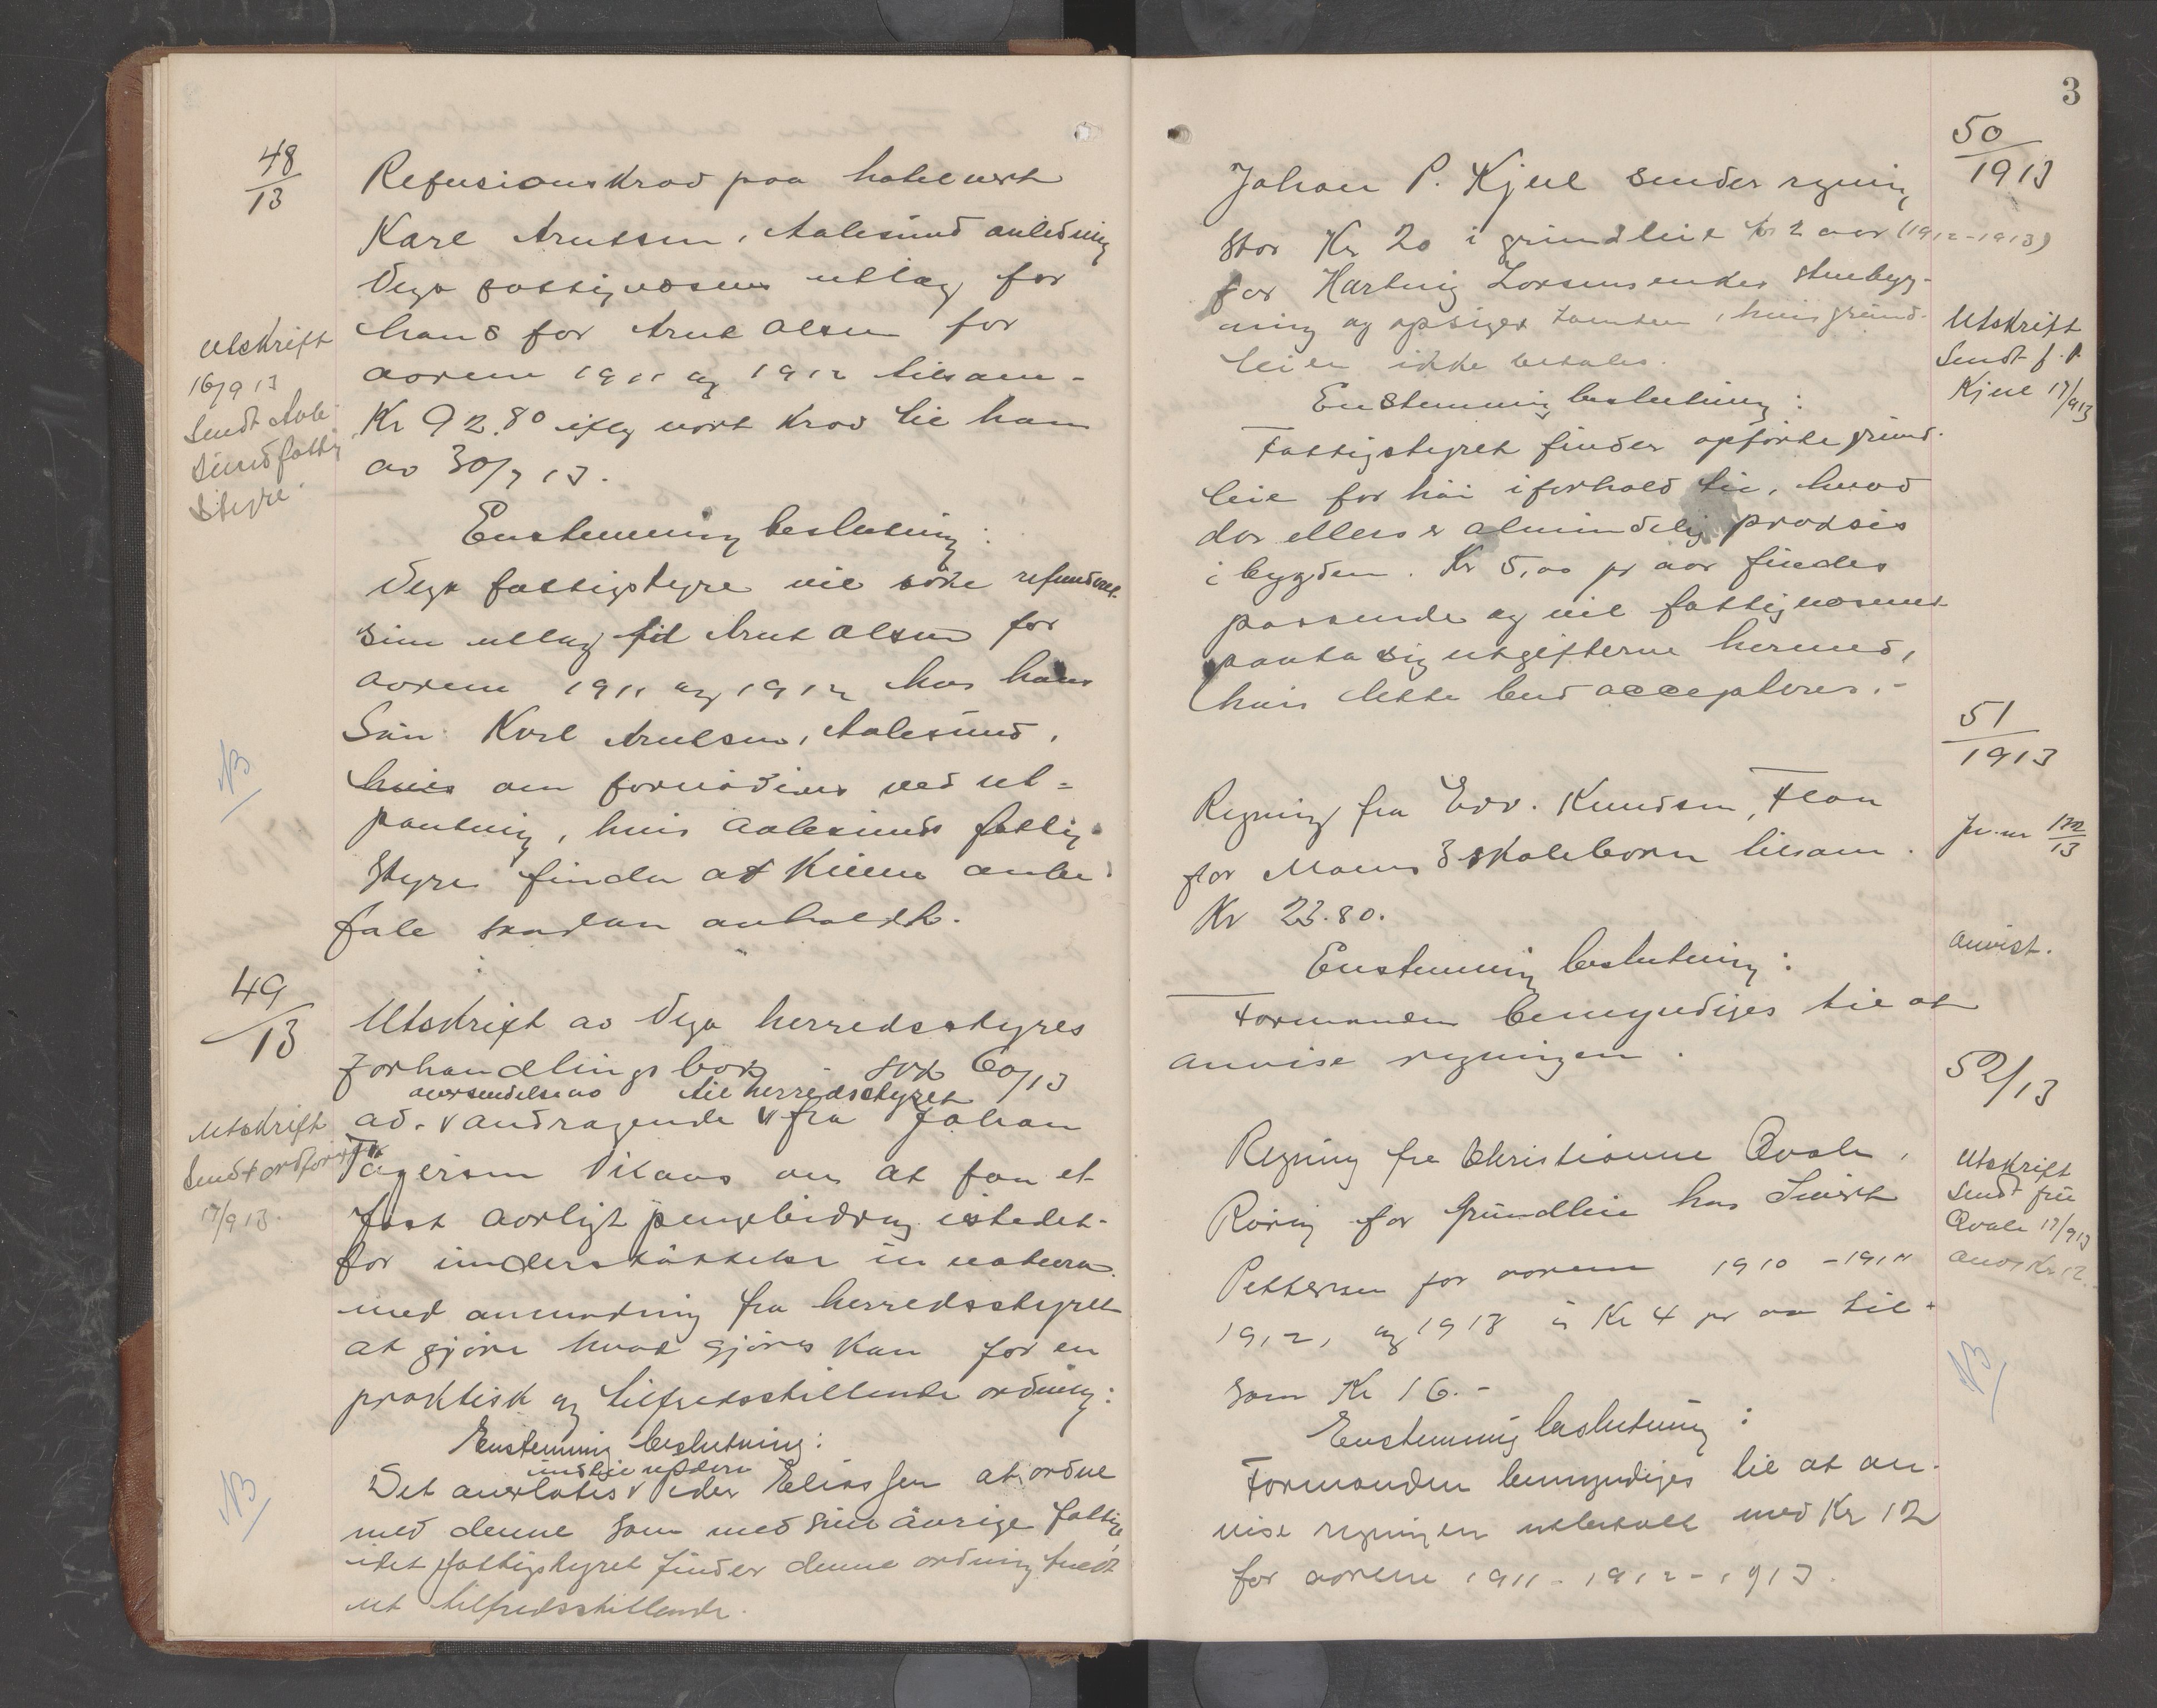 48/13
Refusionskrav paa hotelvert
Karl Arntsen, Aalesund anledning
Vega fattigvæsens utlæg for
hans far Arnt Olsen for
aarene 1911 og 1912 tilsam-
Kr 92.80 iflg vort krav til ham
av 30/7 13.
Utskrift
16/9 13
Sendt Aale-
sund fattig
styre.
Enstemmig beslutning:
Vega fattigstyre vil söke refunderet
sine utlæg til Arnt Olsen for
aarene 1911 og 1912 hos hans
Sön Karl Arntsen, Aalesund,
hvis om fornödiges ved ut=
pantning, hvis Aalesunds fattig-
styre finder at kunne anbe-
fale saadan anholdt.
NB
49/13
Utskrift av Vega herredsstyres
forhandlingsbok sak 60/13
oversendelse av til herredsstyret
ad. v andragende v fra Johan
om at faa et
fast aarligt pengebidrag istedet-
for understöttelse in natura
med anmodning fra herredsstyret
at gjöre hvad gjöres kan for en
praktisk og tilfredsstillende ordning:
Utskrift
Sendt ordförer
17/9 13.
Enstemmig beslutning:
indtil videre
Det overlates v Peder Eliassen at ordne
med denne som med sine övrige fattige
idet fattigstyret finder denne ordning fuldt
ut tilfredsstillende.
NB
3
50/1913
Johan P. Kjul sender regning
stor Kr 20 i grundleie for 2 aar (1912-1913)
for Hartvig Lorensens enkes stuebyg-
ning og opsiger tomten, hvis grund-
leien ikke betales.
Enstemmig beslutning:
Fattigstyret finder opförte grund-
leie for höi i forhold til, hvad
der ellers er almindelig praksis
i bygden. Kr 5,00 pr aar findes
passende og vil fattigvæsenet
paata sig utgifterne hermed,
hvis dette bud accepteres.-
Utskrift
Sendt J. P.
Kjul 17/9 13
51/1913
Regning fra Edv. Knudsen, Floa
for Moens 3 skolebörn tilsam.
Kr 23.80.
Jr. nr 122/13
Enstemmig beslutning:
Formanden bemyndiges til at
anvise regningen.
anvist.
52/13
Regning fra Christianne Qvale,
Röröy for grundleie hos Sivert
Pettersen for aarene 1910 - 1911
1912, og 1913 á Kr 4 pr aar til-
sam Kr 16.-
Utskrift
sendt fru
Qvale 17/9 13
anv. Kr 12.
Enstemmig beslutning:
Formanden bemyndiges til at an-
vise regningen utbetalt med Kr 12
for aarene 1911 - 1912 - 1913.
NB